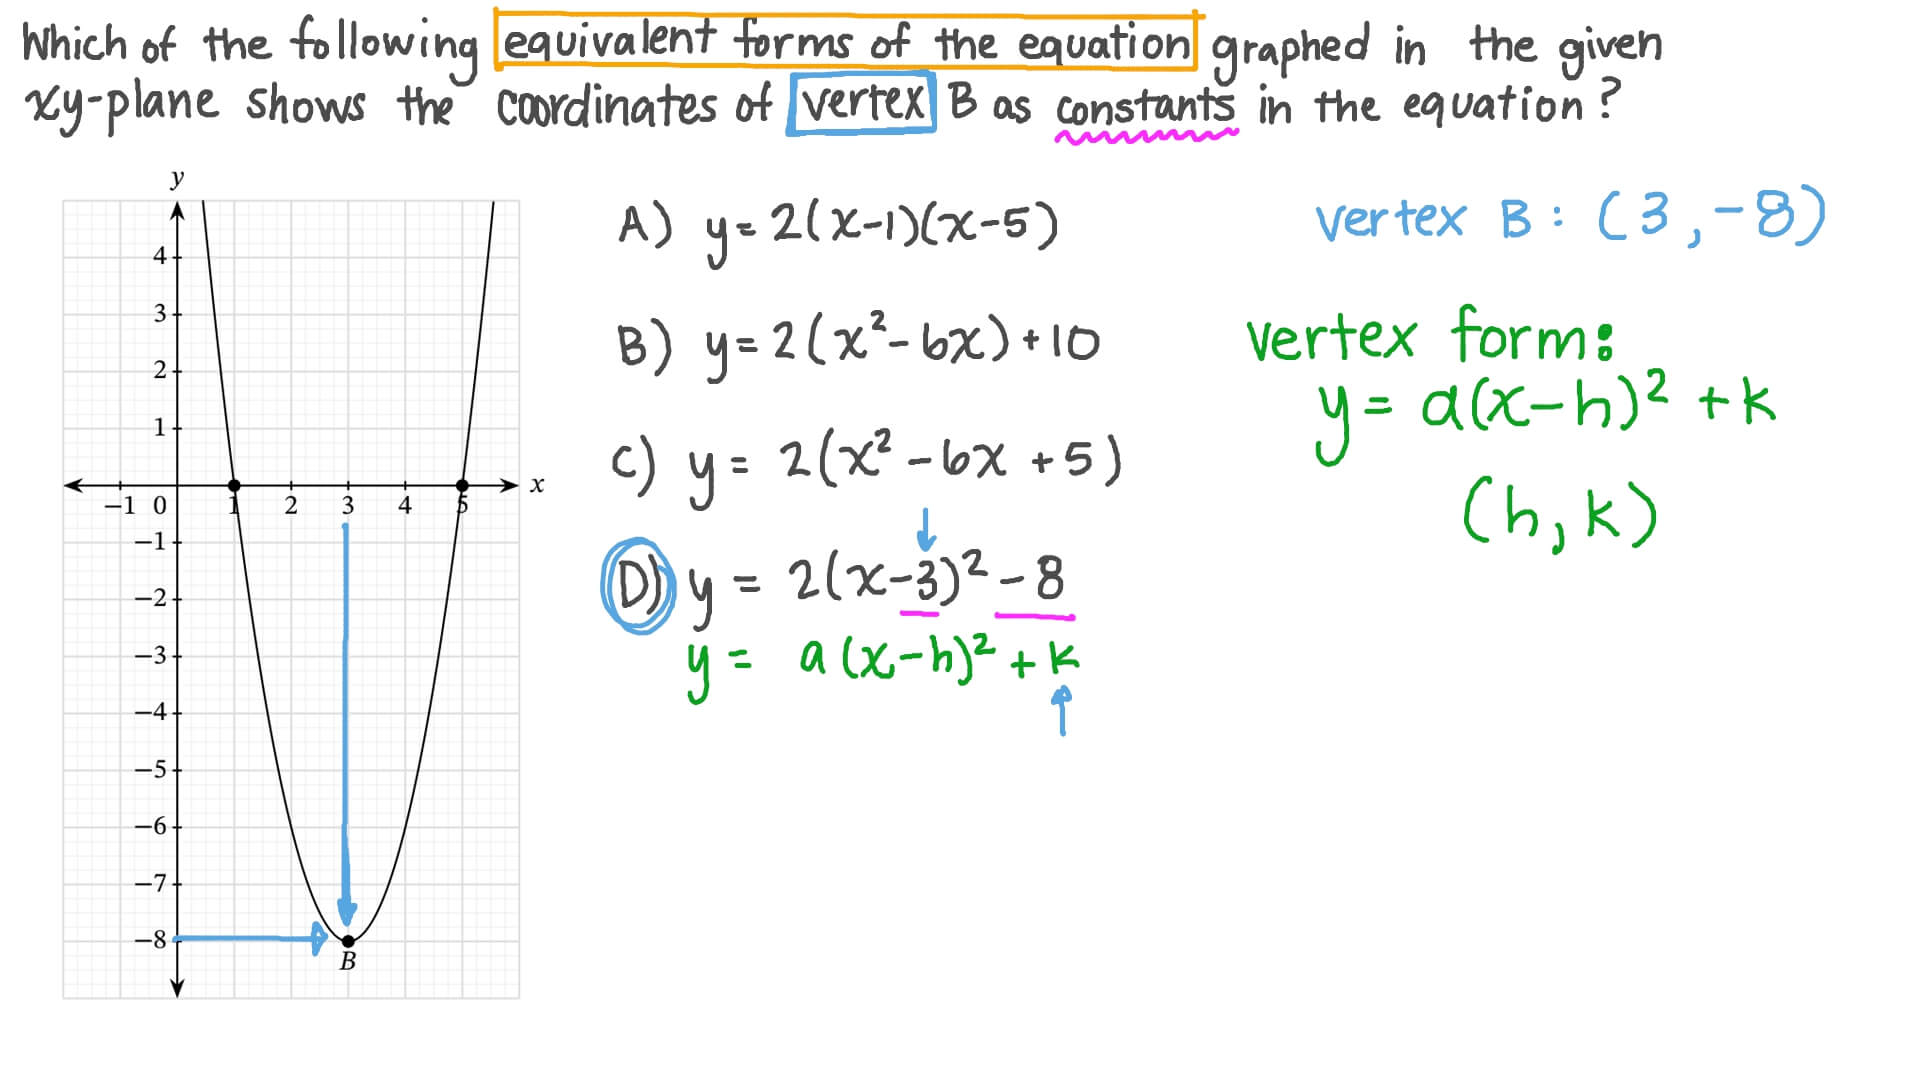 Which of the following equivalent forms of the equation graphed in the given
xy-plane shows the coordinates of vertex B as constants in the equation?
y
4
3
2
1
x
−1 0 1 2 3 4 5
−1
−2
−3
−4
−5
−6
−7
−8
B
A) y = 2(x-1)(x-5)
B) y = 2(x²-6x)+10
C) y = 2(x² -6x +5)
D) y = 2(x-3)² -8
y = a(x-h)² + k
vertex B : (3,-8)
vertex form:
y = a(x-h)² +k
(h,k)